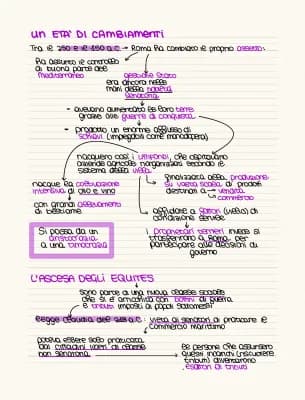 UN ETÀ DI CAMBIAMENTI
Tra il 250 e il 150 a.C. → Roma ha cambiato il proprio assetto:
Ha assunto il controllo
di buona parte del
Mediterraneo
gestione stato
era ancora nelle
mani della nobiltà
senatoria
- avevano aumentato le loro terre
grazie alle guerre di conquista
- prodotto un enorme afflusso di
schiavi (impiegati come manodopera)
nacquero così i latifondi, che ospitavano
aziende agricole organizzate secondo il
sistema della villa
nacque la coltivazione
intensiva di olio e vino
con grandi allevamenti
di bestiame
finalizzata alla produzione
su vasta scala di prodotti
destinati a → vendita
commercio
affidate a fattori (vilici) di
condizione servile
i proprietari terrieri invece si
trasferirono a Roma per
partecipare alle decisioni di
governo
Si passa da un
aristocrazia
a una timocrazia
L'ASCESA DEGLI EQUITES
sono parte di una nuova classe sociale
che si è arricchita con bottini di guerra
e tributi imposti ai popoli sottomessi
legge Claudia del 218 a.C.: vieta ai senatori di praticare il
commercio marittimo
poteva essere solo praticata
dai cittadini liberi di classe
non senatoria
le persone che assunsero
questi incarichi (riscuotere
tributi) diventarono
esattori di tributi